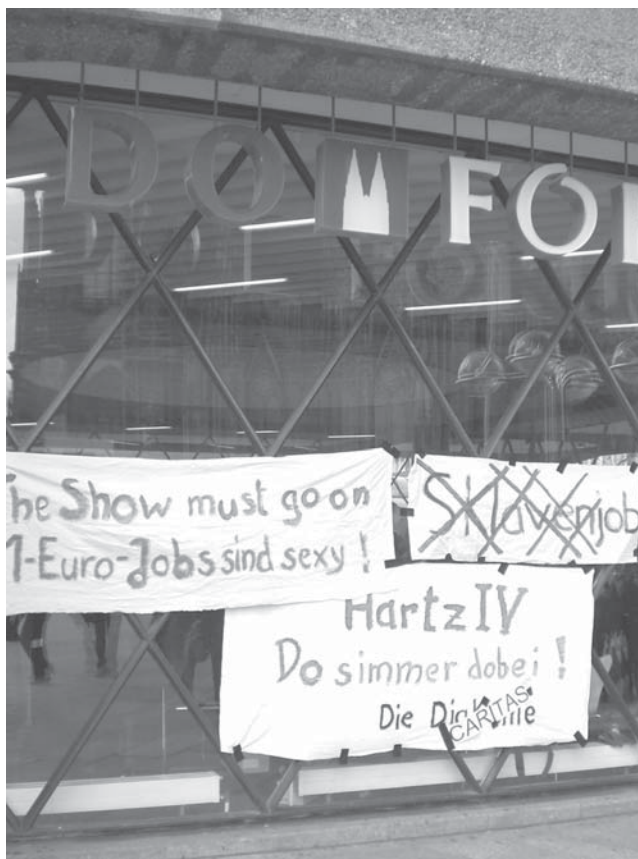 DOMFO
The Show must go on
1-Euro-Jobs sind sexy !
Sklavenjob
Hartz IV
Do simmer dobei !
Die
CARITAS